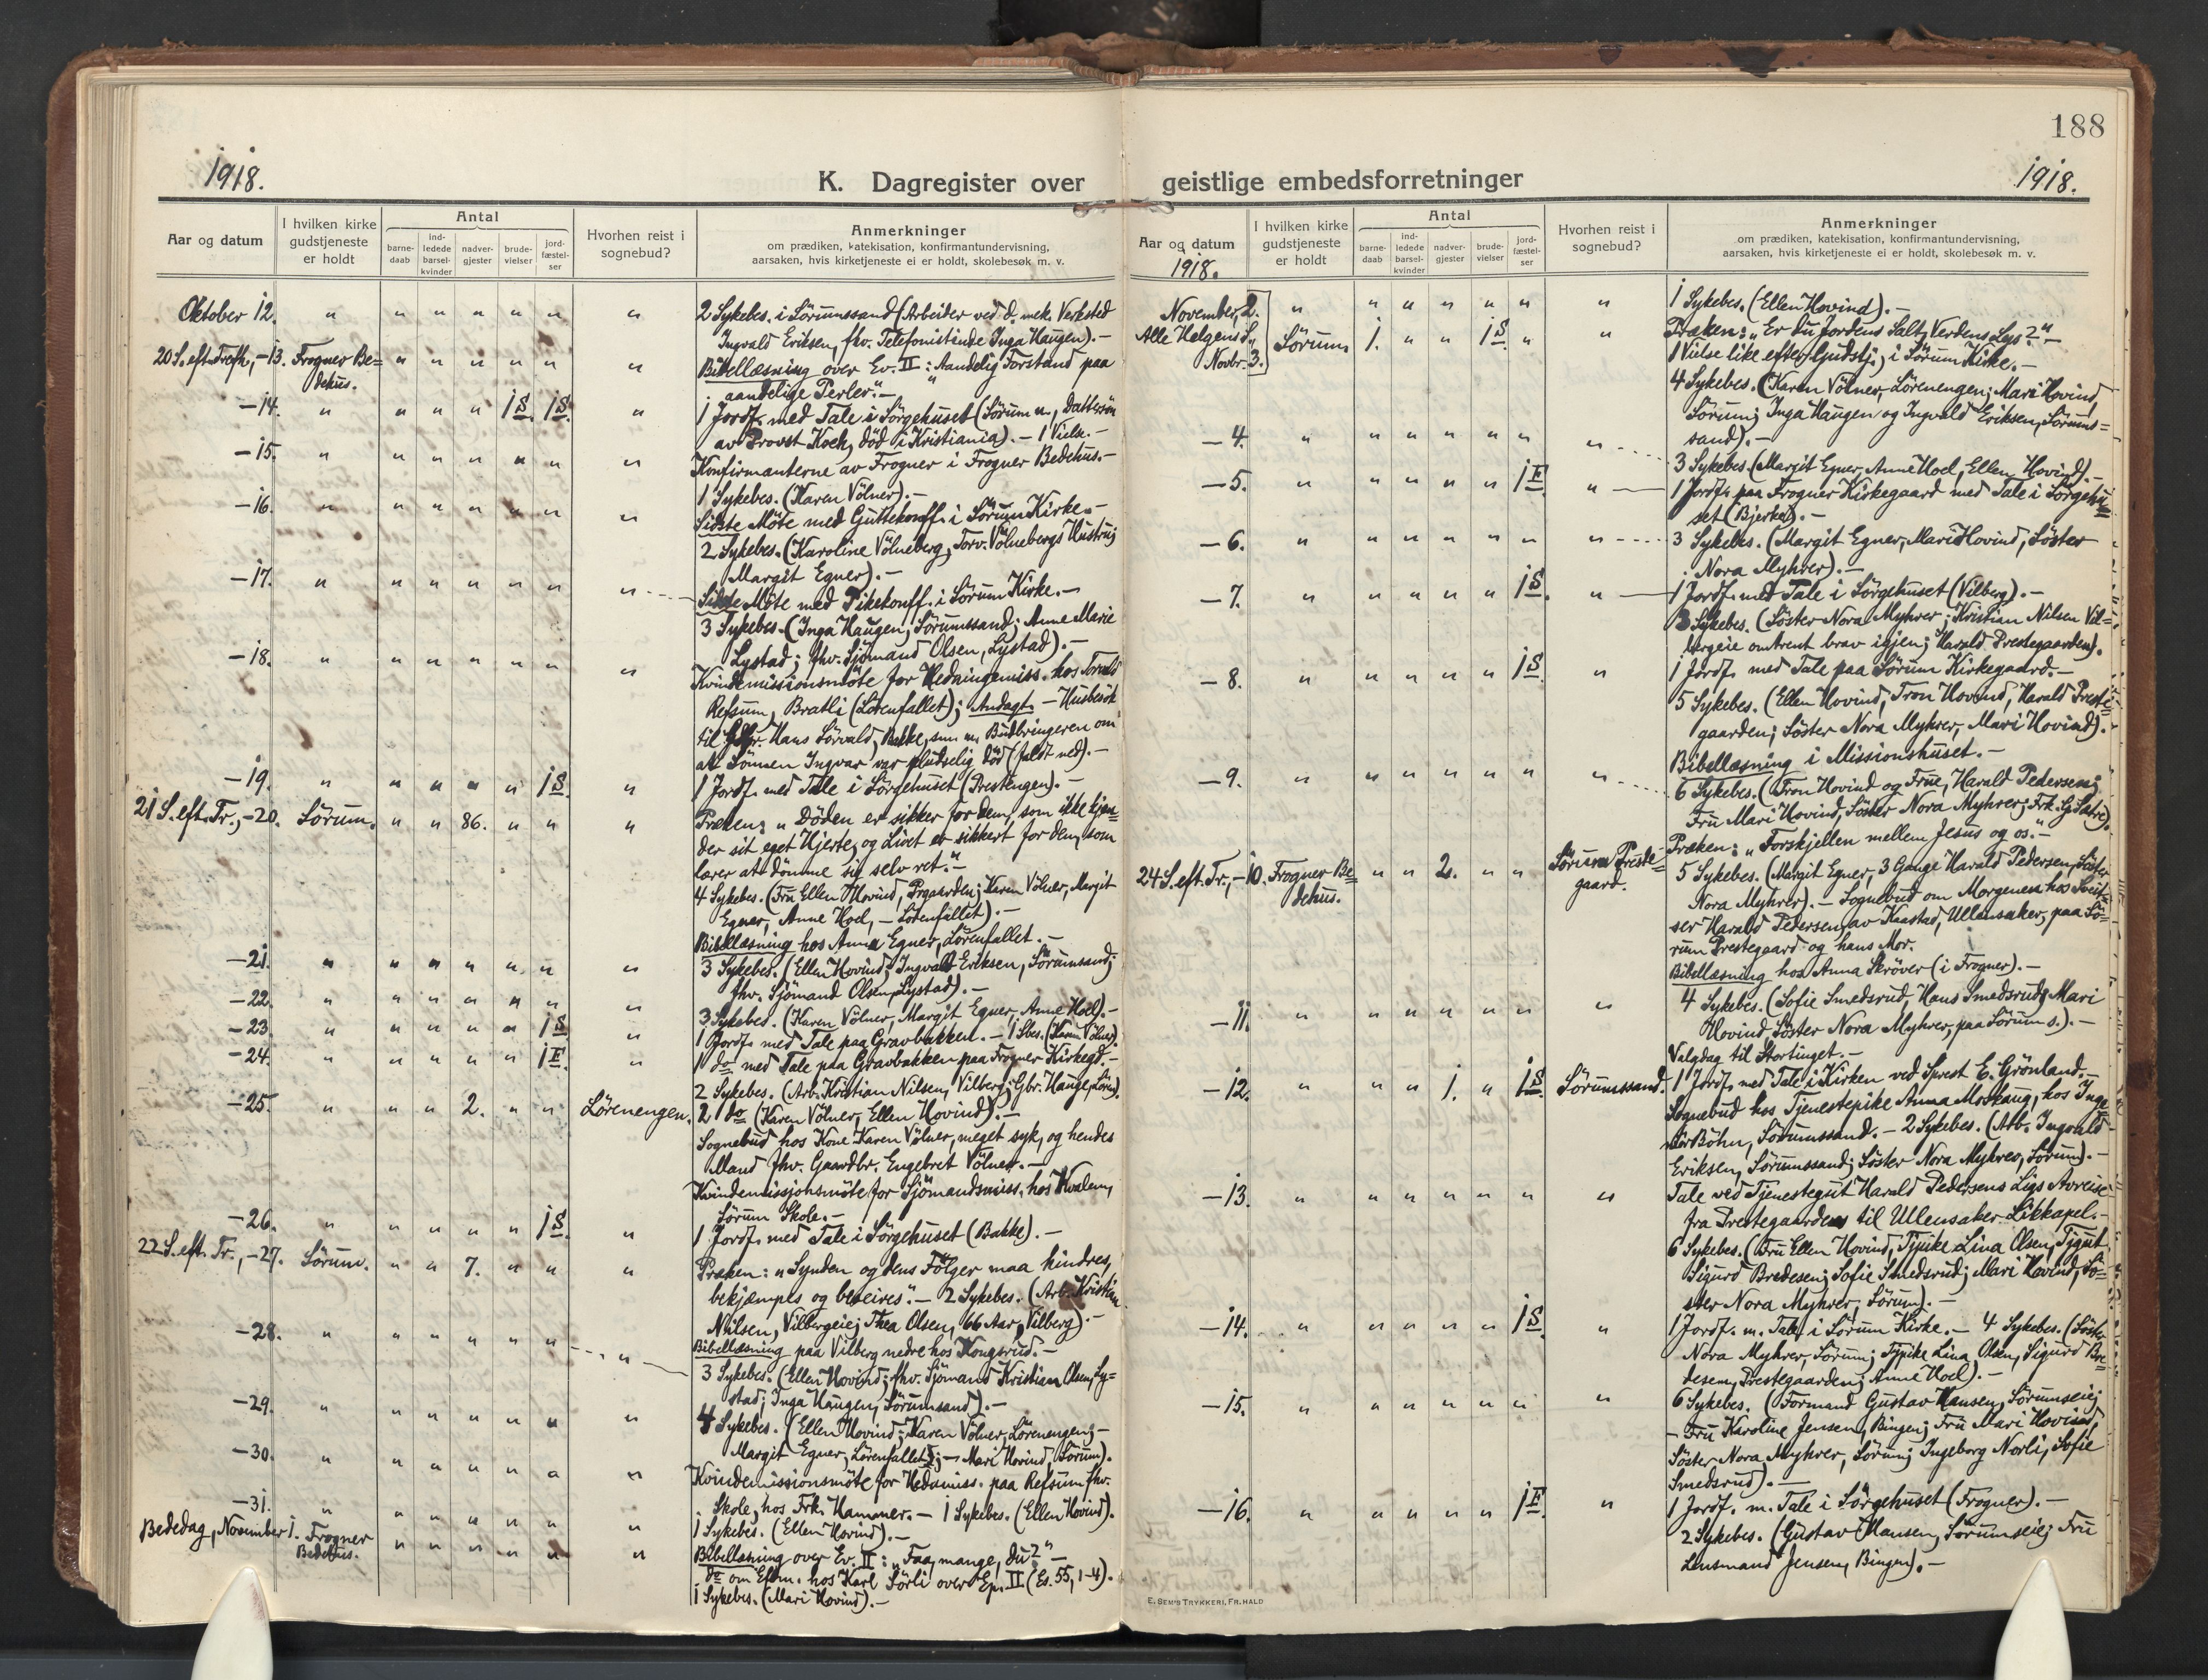 188
1918.
K. Dagregister over
geistlige embedsforretninger
1918.
Aar og datum
I hvilken kirke gudstjeneste er holdt
Antal
barne-daab
ind-ledede barsel-kvinder
nadver-gjester
brude-vielser
jord-fæstel-ser
Hvorhen reist i sognebud?
Anmerkninger
om prædiken, katekisation, konfirmantundervisning,
aarsaken, hvis kirketjeneste ei er holdt, skolebesøk m. v.
Oktober 12. " " " " " " " 2 Sykebes. i Sörumssand (Arbeider ved d. mek. Verksted
Ingvald Eriksen, fhv. Telefonistinde Inga Haugen). –
20 S. eft. Trefh., –13. Frogner Be= " " " " " " Bibellæsning over Ev. II: "Aandelig Forstand paa
dehus.
aandelige Perler." –
–14. " " " " 1 S. 1 S. " 1 Jordf. med Tale i Sörgehuset (Sörum n., Dattersön
av Provst Koch, död i Kristiania). – 1 Vielse. –
–15. " " " " " " " Konfirmanterne av Frogner i Frogner Bedehus. –
1 Sykebes. (Karen Völner). –
–16. " " " " " " " Sidste Möte med Guttekonff. i Sörum Kirke. –
2 Sykebes. (Karoline Völneberg, Torv. Völnebergs Hustru;
Margit Egner). –
–17. " " " " " " " Sidste Möte med Pikekonff. i Sörum Kirke. –
3 Sykebes. (Inga Haugen, Sörumssand; Anne Marie
Lystad; fhv. Sjömand Olsen, Lystad). –
–18. " " " " " " " Kvindemissionsmöte for Hedningemiss. hos
Refsum, Bratli (Lörenfallet); Andagt. – Husbesök
til Gdbr. Hans Sörvald, Bakke, som Budbringeren om
at Sönnen Ingvar var pludselig död (faldt ned). –
–19. " " " " " 1 S. " 1 Jordf. med Tale i Sörgehuset (Prestengen). –
21 S. eft. Tr., –20. Sörum. " " 86. " " " Præken: "Döden er sikker for dem, som ikke kjen=
der sit eget Hjerte, og Livet er sikkert for dem, som
lærer at dömme sig selv ret." –
4 Sykebes. (Fru Ellen Hovind, Prgaarden; Karen Völner, Margit
Egner, Anne Hoel, – Lörenfallet). –
Bibellæsning hos Anna Egner, Lörenfallet. –
–21. " " " " " " " 3 Sykebes. (Ellen Hovind; Ingvald Eriksen, Sörumssand;
fhv. Sjömand Olsen, Lystad). –
–22. " " " " " " " 3 Sykebes. (Karen Völner, Margit Egner, Anne Hoel). –
–23. " " " " " 1 S. " 1 Jordf. med Tale paa Gravbakken. – 1 Sbes. (Karen Völner).
–24. " " " " " 1 F. " 1 do med Tale paa Gravbakken paa Frogner Kirkegd. –
2 Sykebes. (Arb. Kristian Nilsen, Vilberg; Gbr. Hauge, Lören).
–25. " " " 2. " " Lörenengen. 2 do (Karen Völner, Ellen Hovind). –
Sognebud hos Kone Karen Völner, meget syk, og hendes
Mand fhv. Gaardbr. Engebret Völner. –
Kvindemissjonsmöte for Sjömandsmiss. hos Kvalem,
Sörum Skole. –
–26. " " " " " 1 S. " 1 Jordf. med Tale i Sörgehuset (Bakke). –
22 S. eft. Tr., –27. Sörum. " " 7. " " " Præken: "Synden og dens Fölger maa hindres,
bekjæmpes og beseires". – 2 Sykebes. (Arb. Kristian
Nilsen, Vilbergeie; Thea Olsen, 66 Aar, Vilberg). –
–28. " " " " " " " Bibellæsning paa Vilberg nedre hos Kongsrud. –
3 Sykebes. (Ellen Hovind; fhv. Sjömand Kristian Olsen, Ly=
stad; Inga Haugen, Sörumsand). –
–29. " " " " " " " 4 Sykebes. (Ellen Hovind; Karen Völner, Lörenengen; –
Margit Egner, Lörenfallet; – Mari Hovind, Sörum).
–30. " " " " " " " Kvindemissionsmöte for Hedn.miss. paa Refsum fhv.
Skole, hos Frk. Hammer. – 1 Sykebes. (Ellen Hovind).
–31. " " " " " " " 1 Sykebes. (Ellen Hovind). –
Bededag, November 1. Frogner " " " " " " Bibellæsning over Ev. II: "Faa, mange, du?" –
Bedehus.
do om Efterm. hos Karl Sörli over Ep. II (Es. 55, 1–4).
1 Sykebes. (Mari Hovind). –
Aar og datum
1918.
I hvilken kirke gudstjeneste er holdt
Antal
barne-daab
ind-ledede barsel-kvinder
nadver-gjester
brude-vielser
jord-fæstel-ser
Hvorhen reist i sognebud?
Anmerkninger
om prædiken, katekisation, konfirmantundervisning,
aarsaken, hvis kirketjeneste ei er holdt, skolebesøk m. v.
November, 2. " " " " " " " 1 Sykebes. (Ellen Hovind). –
Alle Helgens S., Sörum. 1. " " 1 S. " " Præken: "Er du Jordens Salt, Verdens Lys?" –
Novbr. 3.
1 Vielse like efter Gudstj. i Sörum Kirke. –
4 Sykebes. (Karen Völner, Lörenengen; Mari Hovind,
Sörum; Inga Haugen og Ingvald Eriksen, Sörums=
sand). –
–4. " " " " " " " 3 Sykebes. (Margit Egner, Anne Hoel, Ellen Hovind). –
–5. " " " " " 1 F. " 1 Jordf. paa Frogner Kirkegaard med Tale i Sörgehu=
set (Bjerke). –
–6. " " " " " " " 3 Sykebes. (Margit Egner, Mari Hovind, Söster
Nora Myhrer). –
–7. " " " " " 1 S. " 1 Jordf. med Tale i Sörgehuset (Vilberg). –
3 Sykebes. (Söster Nora Myhrer; Kristian Nilsen Vil=
bergeie omtrent brav igjen; Harald Prestegaarden).
–8. " " " " " 1 S. " 1 Jordf. med Tale paa Sörum Kirkegaard. –
5 Sykebes. (Ellen Hovind, Tron Hovind, Harald Preste=
gaarden; Söster Nora Myhrer, Mari Hovind).
Bibellæsning i Missionshuset. –
–9. " " " " " " " 6 Sykebes. (Tron Hovind og Frue, Harald Pedersen;
Fru Mari Hovind, Söster Nora Myhrer; Frk. G. Sætre).
Præken: "Forskjellen mellem Jesus og os." –
24 S. eft. Tr., –10. Frogner Be= " " 2. " " Sörum Preste=
dehus.
gaard.
5 Sykebes. (Margit Egner, 3 Gange Harald Pedersen, Söster
Nora Myhrer). – Sognebud om Morgenen hos Sveit=
ser Harald Pedersen, av Kaastad, Ullensaker, paa Sö=
rum Prestegaard og hans Mor.
Bibellæsning hos Anna Skröver (i Frogner). –
–11. " " " " " " " 4 Sykebes. (Sofie Smedsrud, Hans Smedsrud, Mari
Hovind, Söster Nora Myhrer, paa Sörum s.). –
Valgdag til Stortinget. –
–12. " " " 1. " 1 S. Sörumssand. 1 Jordf. med Tale i Kirken ved Sprest E. Grönland. –
Sognebud hos Tjenestepike Anna Morkaug, hos Inge
niör Böhn, Sörumssand. – 2 Sykebes. (Arb. Ingvald
Eriksen, Sörumssand; Söster Nora Myhrer, Sörum). –
–13. " " " " " " " Tale ved Tjenestegut Harald Pedersens Ligs Avreise
fra Prestegaarden til Ullensaker Likkapel. –
6 Sykebes. (Fru Ellen Hovind, Tjpike Lina Olsen, Tjgut
Sigurd Bredesen; Sofie Smedsrud; Mari Hovind, Sö=
ster Nora Myhrer, Sörum). –
–14. " " " " " 1 S. " 1 Jordf. m. Tale i Sörum Kirke. – 4 Sykebes. (Söster
Nora Myhrer, Sörum; Tjpike Lina Olsen, Sigurd Bre=
desen, Prestegaarden; Anne Hoel). –
–15. " " " " " " " 6 Sykebes. (Formand Gustav Hansen, Sörumseie;
– Fru Karoline Jensen, Bingen; Fru Mari Hovind,
Söster Nora Myhrer, Sörum; Ingeborg Norli, Sofie
Smedsrud). –
–16. " " " " " 1 F. " 1 Jordf. m. Tale i Sörgehuset (Frogner). –
2 Sykebes. (Gustav Hansen, Sörumseie; Fru
Lensmand Jensen, Bingen). –
E. SEM'S TRYKKERI, FR.HALD